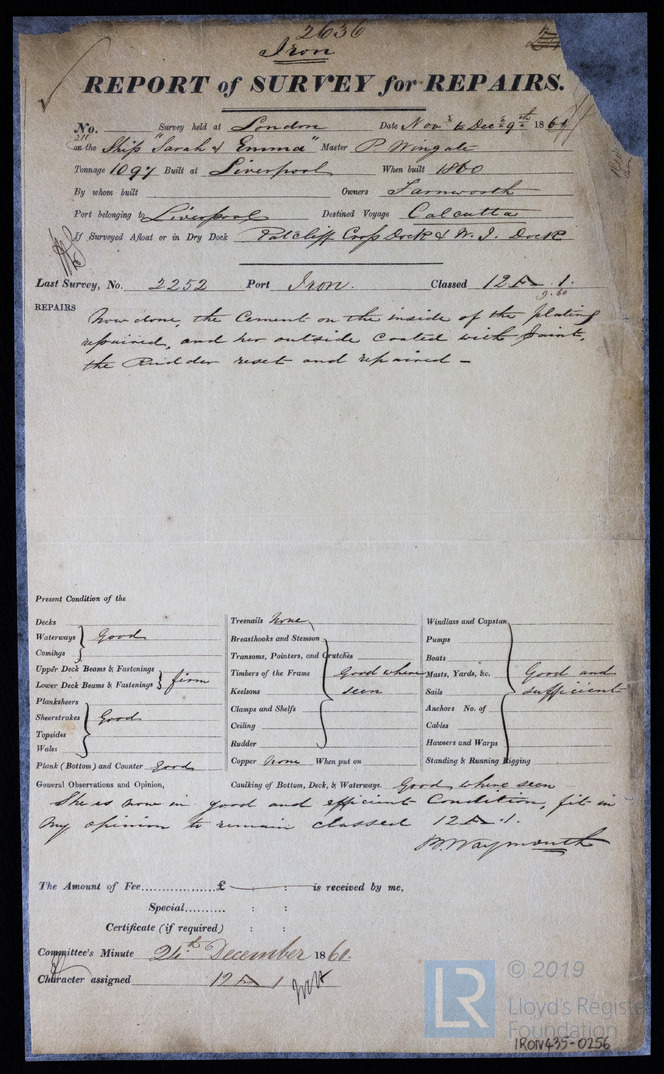 2636
Iron
REPORT of SURVEY for REPAIRS.
No. Survey held at London Date Novr to Dec 9th 1860
on the Ship "Sarah & Emma" Master P. Wingate
Tonnage 1097 Built at Liverpool When built 1860
By whom built Owners Farnworth
Port belonging to Liverpool Destined Voyage Calcutta
If Surveyed Afloat or in Dry Dock Ratcliff Cross Dock & W. I. Dock
Last Survey, No. 2252 Port Iron. Classed 12 A 1.
9.60
REPAIRS Now done, the Cement on the inside of the plating
repaired, and her outside coated with paint,
the Rudder reset and repaired –
Present Condition of the
Decks
Waterways Good
Comings
Upper Deck Beams & Fastenings
Lower Deck Beams & Fastenings firm
Planksheers
Sheerstrakes Good
Topsides
Wales
Plank (Bottom) and Counter Good
Treenails None
Breasthooks and Stemson
Transoms, Pointers, and Crutches
Timbers of the Frame Good where
Keelsons seen
Clamps and Shelfs
Ceiling
Rudder
Copper None When put on
Windlass and Capstan
Pumps
Boats
Masts, Yards, &c. Good and
Sails sufficient
Anchors No. of
Cables
Hawsers and Warps
Standing & Running Rigging
General Observations and Opinion, Caulking of Bottom, Deck, & Waterways. Good where seen
She is now in good and efficient Condition, fit in
my opinion to remain classed 12 A 1.
B. Waymouth
The Amount of Fee............... £ : : is received by me,
Special.......... : :
Certificate (if required) : :
Committee's Minute 24th December 1860.
Character assigned 12 A 1
LR
© 2019
Lloyd's Registe
Foundation
IRON435-0256